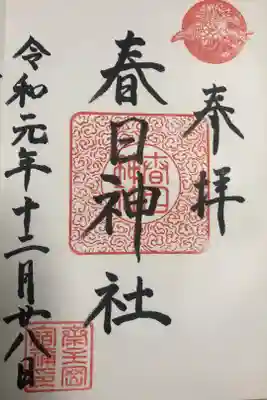 奉拝
春日神社
令和元年十二月廿八日